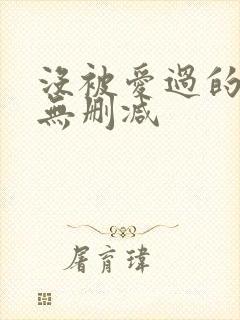 沒被愛過的
無刪減
屠育瑋